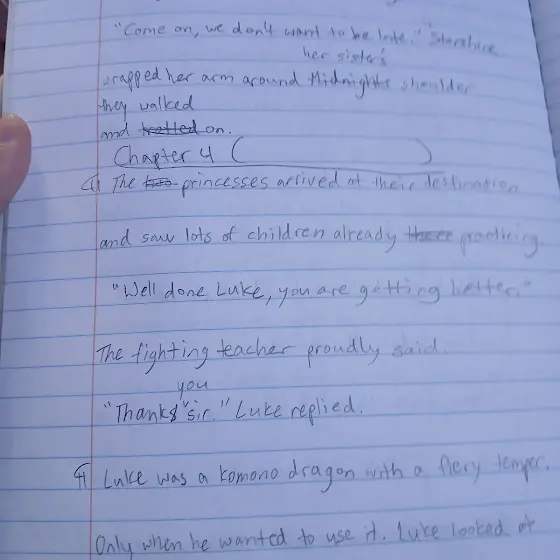 "Come on, we don't want to be late."
her sister's
wrapped her arm around Midnights shoulder
they walked
and trotted on.
Chapter 4 ( )
The two princesses arrived at their destination
and saw lots of children already there practicing.
"Well done Luke, you are getting better."
The fighting teacher proudly said.
you
"Thanks "sir." Luke replied.
Luke was a komono dragon with a fiery temper.
Only when he wanted to use it. Luke looked at